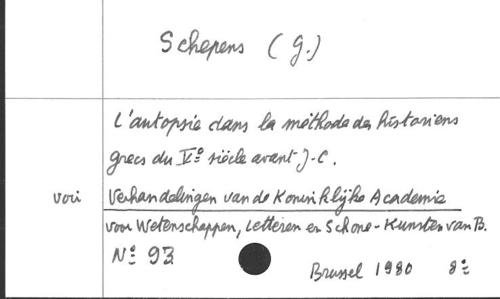 Schepens (G.)
L'autopsie dans la méthode des historiens
grecs du Vᵉ siècle avant J-C.
voir Verhandelingen van de Koninklijke Academie
voor Wetenschappen, Letteren en Schone-Kunsten van B.
Nº 93
Brussel 1980 8º